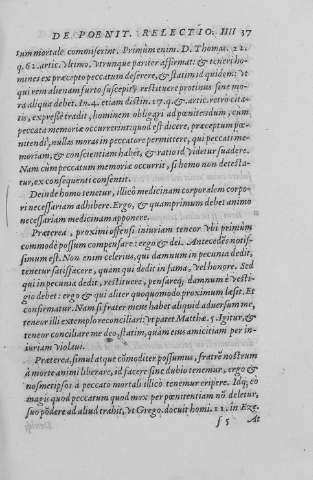 DE POENIT. RELECTIO. IIII 37
sum mortale commiserint. Primùm enim. D. Thomas. 22.
q. 62. artic. vltimo. vtrunque pariter affirmat: & teneri ho-
mines ex præcepto peccatum deserere, & statim id quidem: vt
qui rem alienam furto suscepit, restituere protinus sine mo-
ra aliqua debet. In. 4. etiam distin. 17. q. & artic. retrò cita-
tis, expressè tradit, hominem obligari ad pœnitendum, cum
peccata memoriæ occurrerint: quod est dicere, præceptum pœ-
nitendi, nullas moras in peccatore permittere, qui peccati me-
moriam, & conscientiam habet, & ratio id videtur suadere.
Nam cum peccatum memoriæ occurrit, si homo non detesta-
tur, ex consequenti consentit.
Deinde homo tenetur, illicò medicinam corporalem corpo-
ri necessariam adhibere. Ergo, & quamprimum debet animo
necessariam medicinam apponere.
Præterea, proximi offensi iniuriam teneor vbi primùm
commodè possum compensare: ergo & dei. Antecedẽs notis-
simum est. Non enim celerius, qui damnum in pecunia dedit,
tenetur satisfacere, quàm qui dedit in fama, vel honore. Sed
qui in pecunia dedit, restituere, pensareq; damnum è vesti-
gio debet: ergo & qui aliter quoquomodo proximum læsit. Et
confirmatur. Nam si frater meus habet aliquid aduersum me,
teneor illi extemplo reconciliari: vt patet Matthæ. 5. Igitur, &
teneor conciliare me deo, statim, quàm eius amicitiam per in-
iuriam violaui.
Præterea, simul atque cõmoditer possumus, fratrẽ nostrum
à morte animi liberare, id facere sine dubio tenemur, ergo &
nosmetipsos à peccato mortali illicò tenemur eripere. Idq; eo
magis quod peccatum quod mox per pœnitentiam nõ deletur,
suo põdere ad aliud trahit, vt Grego. docuit homi. 11. in Eze.
f 5 At